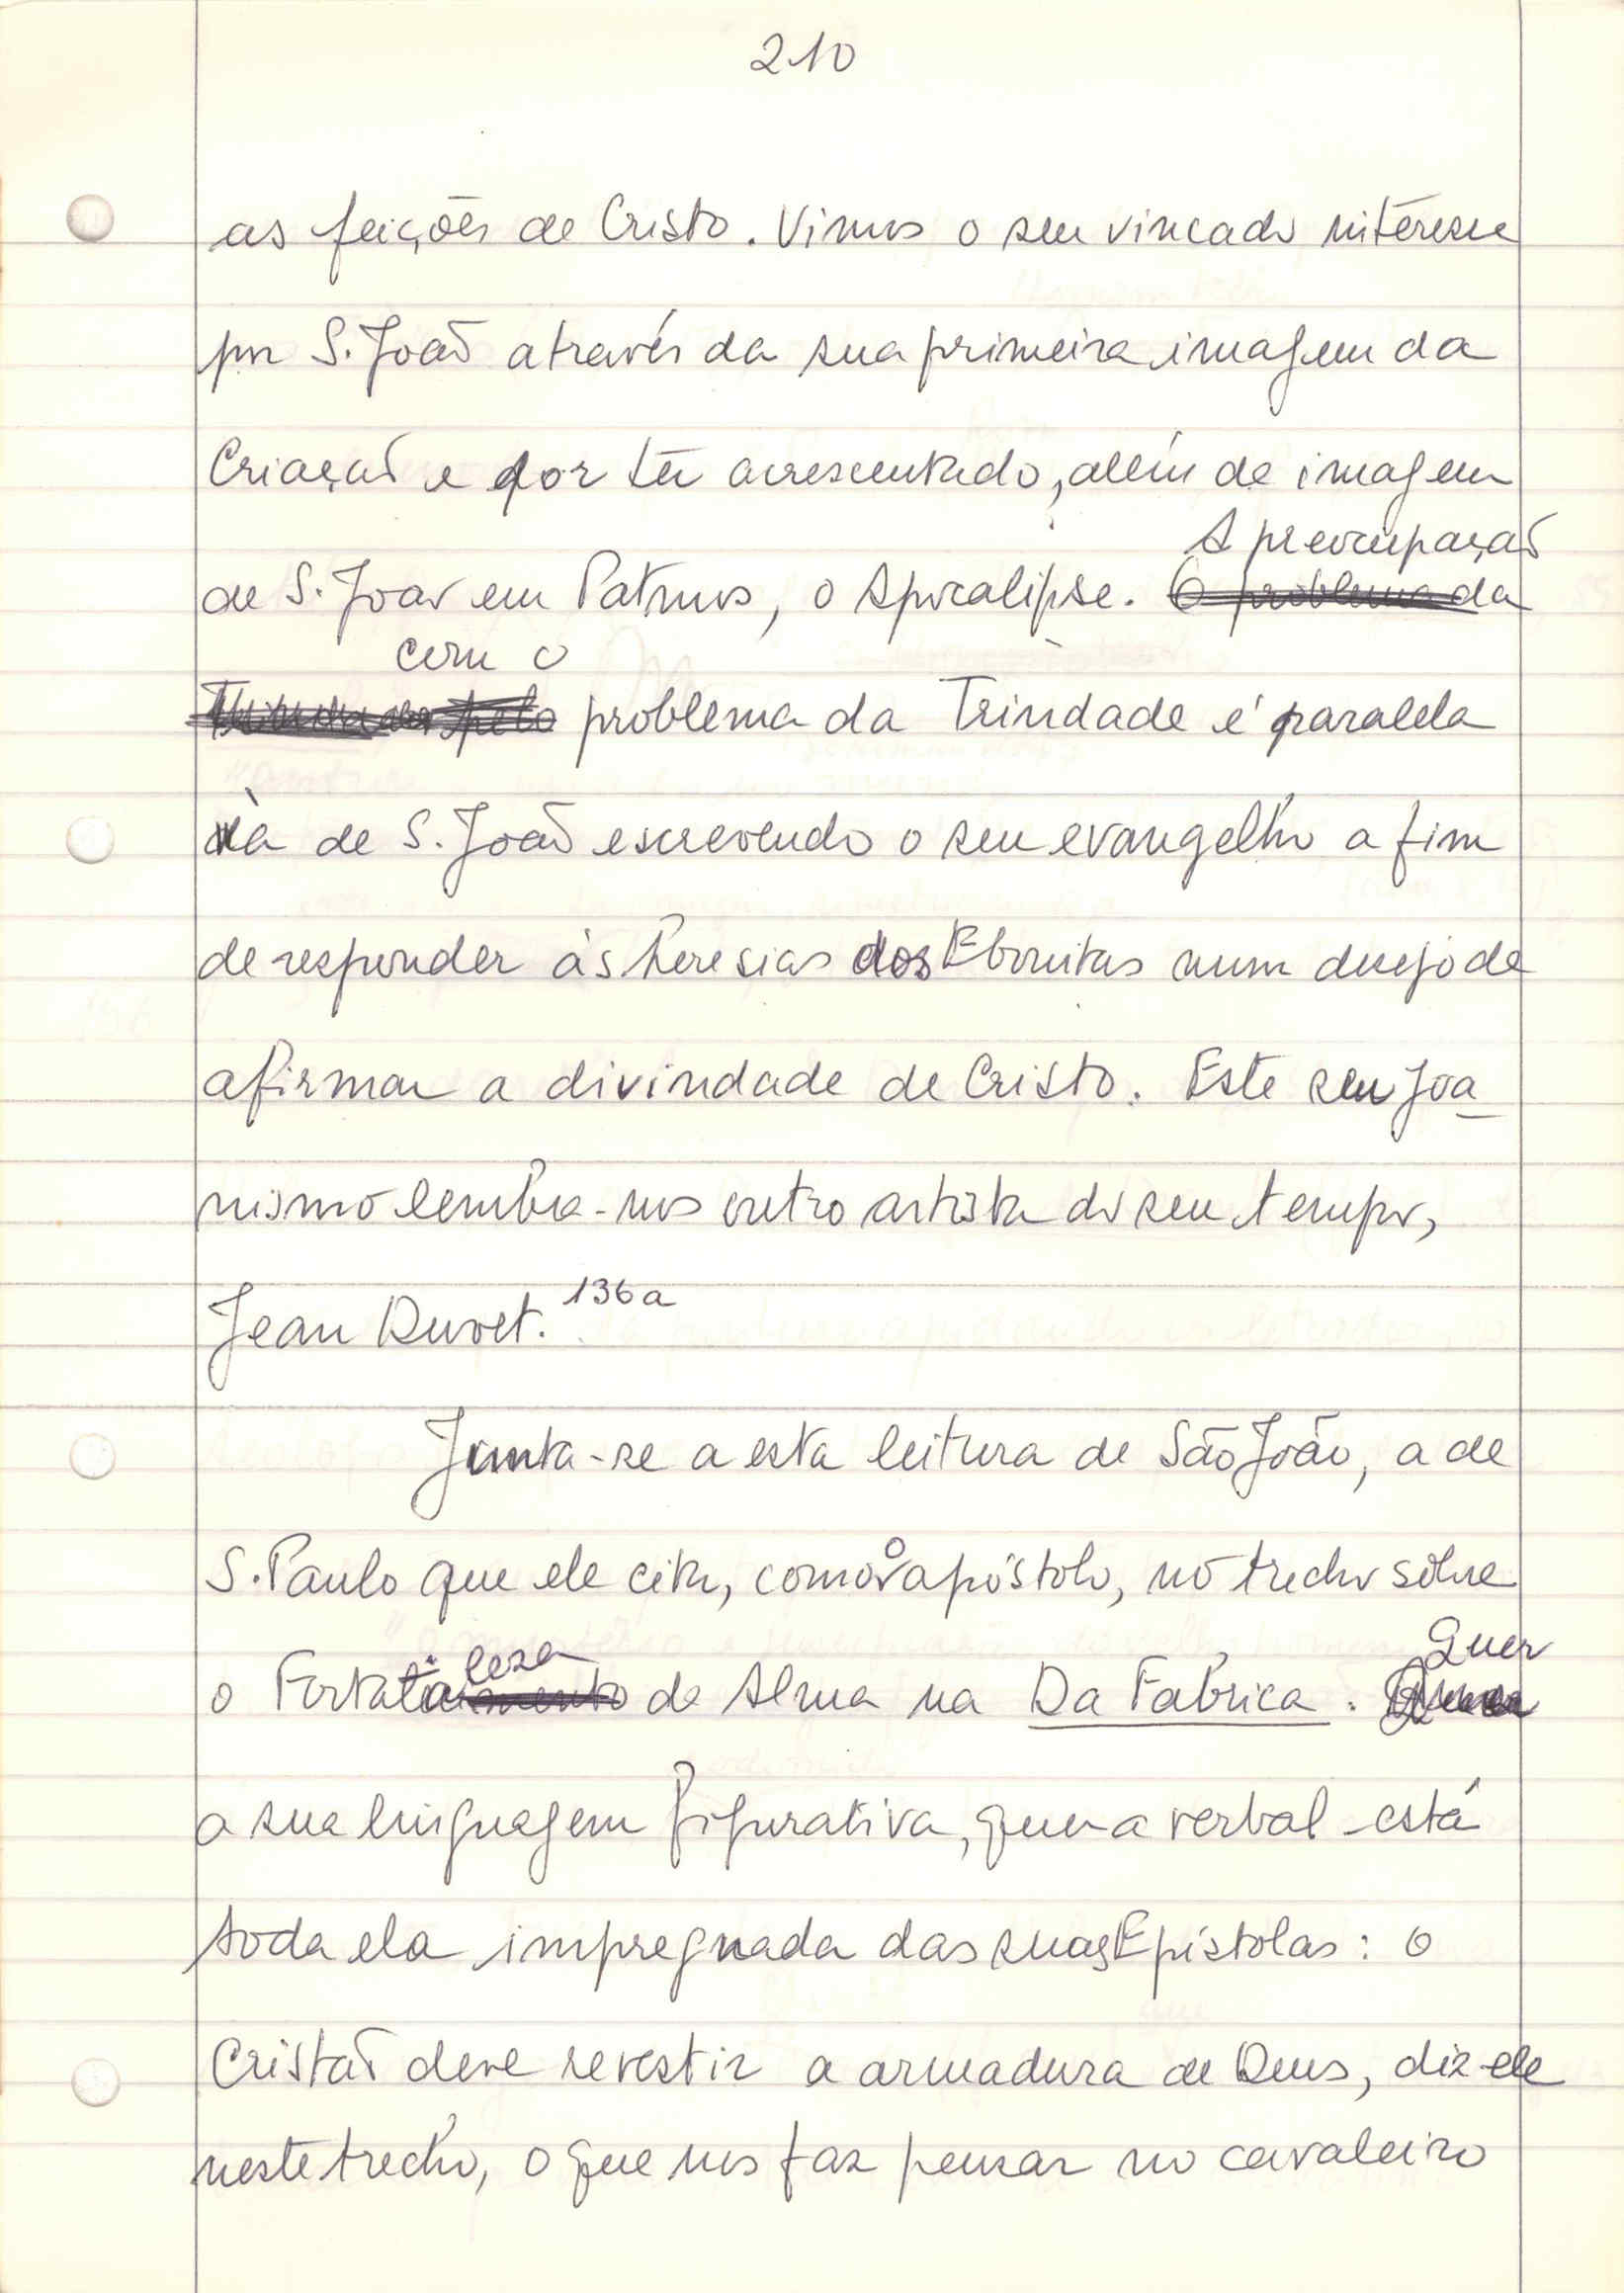 210
as feições de Cristo. Vimos o seu vincado interêsse
por S. João através da sua primeira imagem da
Criação e por ter acrescentado, além de imagem
A preocupação
de S. João em Patmos, o Apocalipse. O problema da
com o
pelo problema da Trindade é paralela
à de S. João escrevendo o seu evangelho a fim
de responder às heresias dos Ebonitas num desejo de
afirmar a divindade de Cristo. Este seu Joa_
nismo lembra-nos outro artista do seu tempo,
Jean Duvet. 136a
Junta-se a esta leitura de São João, a de
S. Paulo que ele cita, como o apóstolo, no trecho sôbre
leza Quer
o Fortale da Alma na Da Fabrica.
a sua linguagem figurativa, quer a verbal está
toda ela impregnada das suas Epístolas: o
Cristão deve revestir a armadura de Deus, diz ele
neste trecho, o que nos faz pensar no cavaleiro